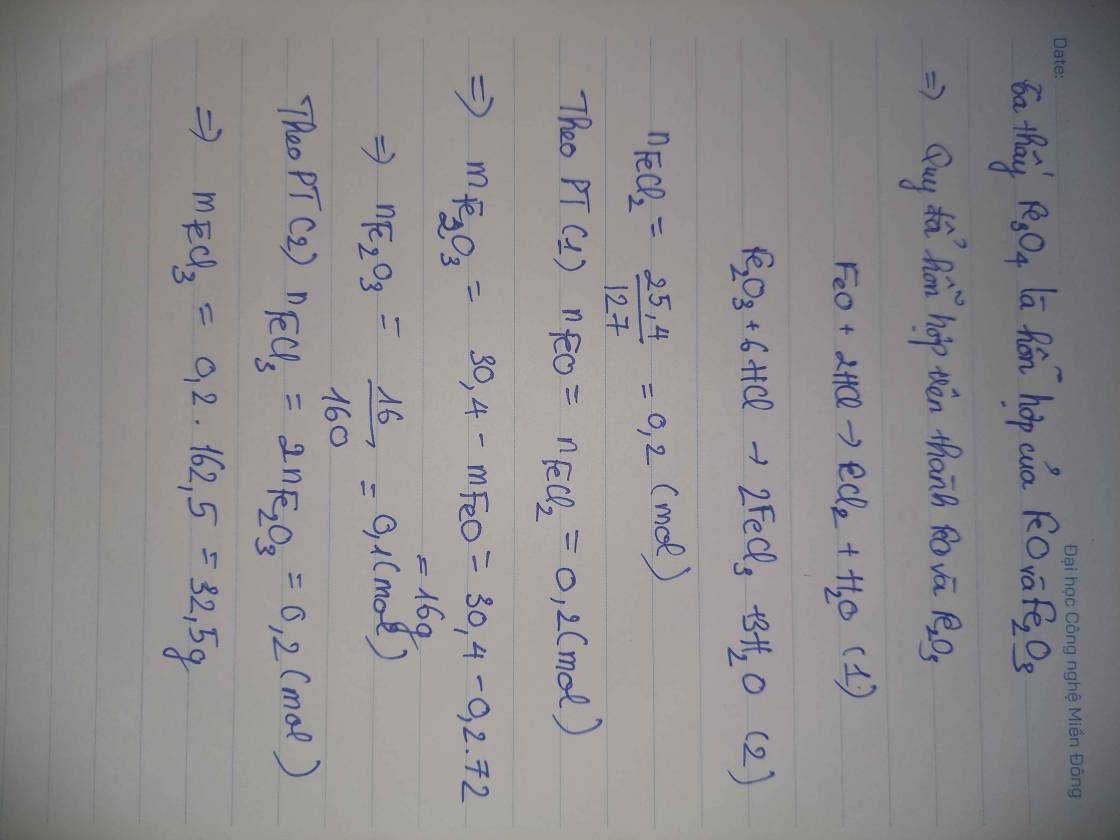 Đại học Công nghệ Miền Đông
Date:
Ta thấy Fe₃O₄ là hỗn hợp của FeO và Fe₂O₃
=) Quy đổi hỗn hợp trên thành FeO và Fe₂O₃
FeO + 2HCl → FeCl₂ + H₂O (1)
Fe₂O₃ + 6HCl → 2FeCl₃ + 3H₂O (2)
nFeCl₂ = 25,4/127 = 0,2 (mol)
Theo PT (1) nFeO = nFeCl₂ = 0,2 (mol)
=) mFe₂O₃ = 30,4 - mFeO = 30,4 - 0,2.72
= 16g
=) nFe₂O₃ = 16/160 = 0,1 (mol)
Theo PT (2) nFeCl₃ = 2nFe₂O₃ = 0,2 (mol)
=) mFeCl₃ = 0,2 . 162,5 = 32,5g